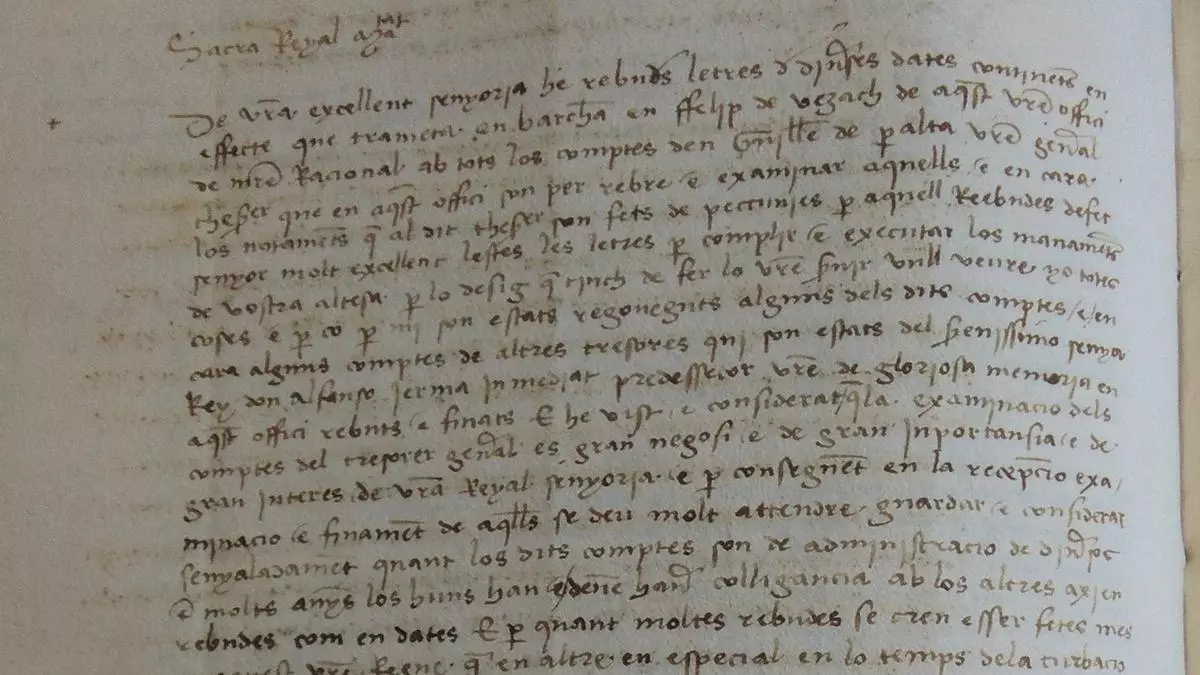 Sacra Reyal Matat
De vra excellent senyoria he rebudes letres d diuses dates continets en
effecte que trameta en barchna en ffelip de vezach de aqst vre offici
de mre Racional ab tots los comptes den Guille de p alta vre genal
theser que en aqst offici son per rebre e examinar aquells e en cara
los notamets q al dit theser son fets de peccunies p aquell Reebudes de fet
senyor molt excellent lestes les letres p complir e executar los manamets
de vostra altesa p lo desig q tinch de fer lo vre suir vull veure yo totes
coses e p co p mi son estats regoneguts alguns dels dits comptes e en
cara alguns comptes de altres tresores qui son estats del serenissimo senyor
Rey don alfonso jerma inmediat predessecor vre de gloriosa memoria en
aqst offici rebuts e finats E he vist e considerat q la examinacio dels
comptes del tresorer genal es gran negosi e de gran inportansia e de
gran interes de vra Reyal senyoria e p conseguet en la recepcio exa
minacio e finamet de aqlls se deu molt attendre guardar e considerar
senyaladamet quant los dits comptes son de administracio de diuses
e molts anys los huns han e deue haur colligancia ab los altres axi en
rebudes com en dates E p quant moltes rebudes se cren esser fetes mes
vre Regne q en altre en especial en lo temps dela turbacio